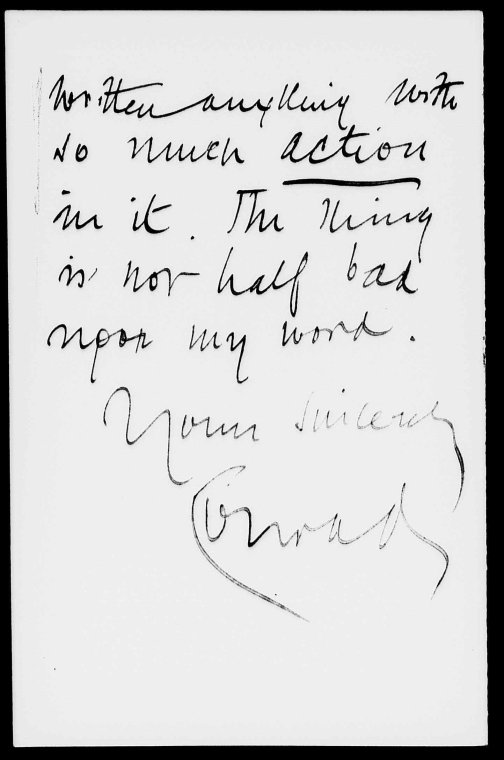 written anything with
so much action
in it. The thing
is not half bad
upon my word.
Yours sincerely
Conrad